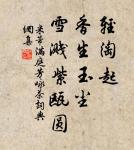 轻淘起
香生玉尘
雪溅紫瓯圆
米芾满庭芳咏茶词典
网集